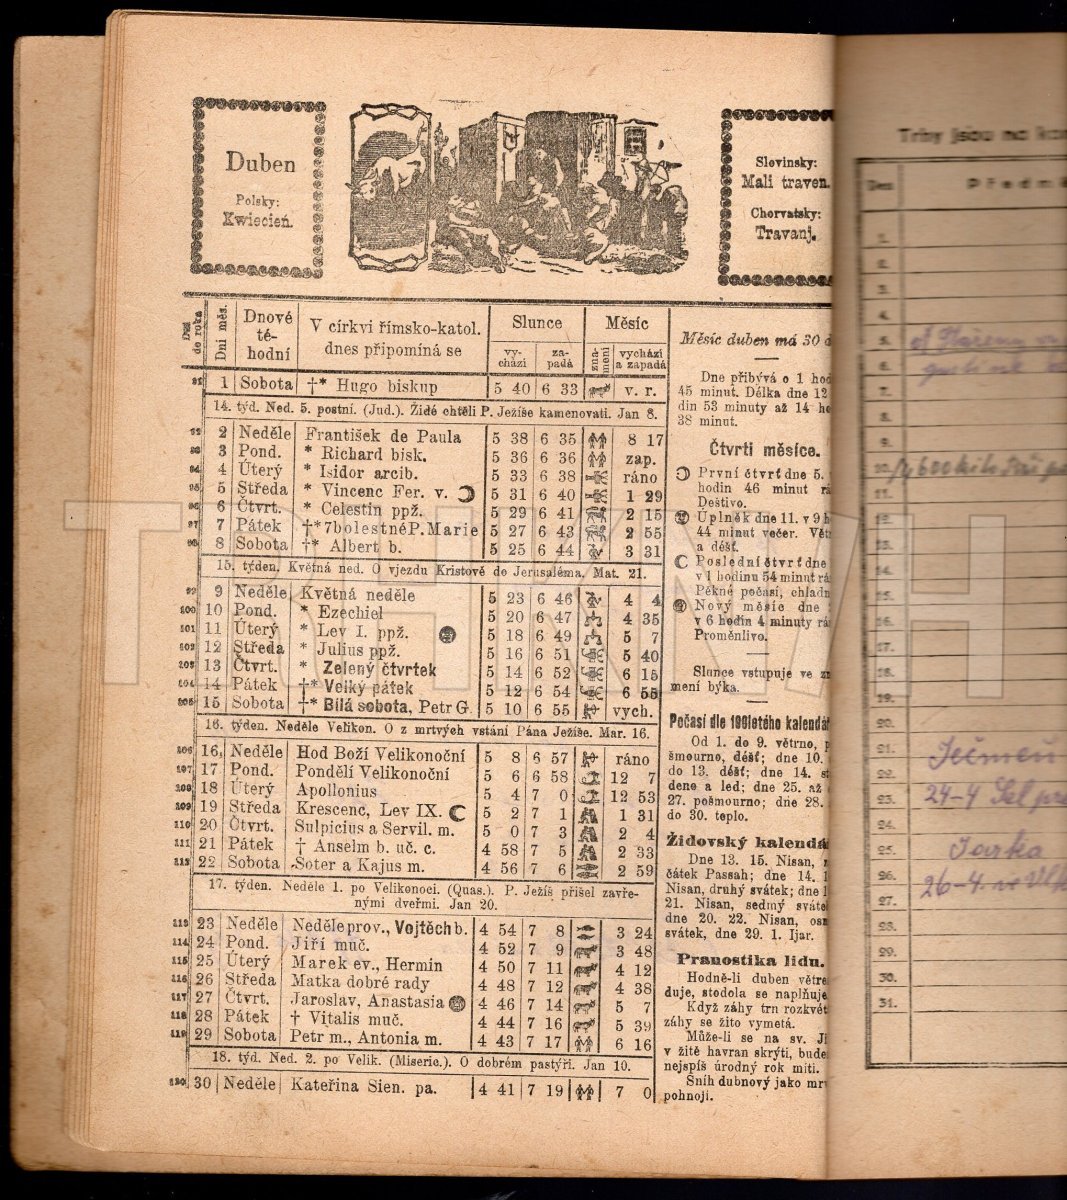 Duben
Polsky:
Kwiecień.
Slovinsky:
Mali traven.
Chorvatsky:
Travanj.
Den do roka
Dni měs.
Dnové té-hodní
V církvi římsko-katol. dnes připomíná se
Slunce
vy-chází
za-padá
Měsíc
zna-mení
vychází a zapadá
91 1 Sobota †* Hugo biskup 5 40 6 33 v. r.
14. týd. Ned. 5. postní. (Jud.). Židé chtěli P. Ježíše kamenovati. Jan 8.
92 2 Neděle František de Paula 5 38 6 35 8 17
93 3 Pond. * Richard bisk. 5 36 6 36 zap.
94 4 Úterý * Isidor arcib. 5 33 6 38 ráno
95 5 Středa * Vincenc Fer. v. 5 31 6 40 1 29
96 6 Čtvrt. * Celestin ppž. 5 29 6 41 2 15
97 7 Pátek †* 7bolestné P. Marie 5 27 6 43 2 55
98 8 Sobota †* Albert b. 5 25 6 44 3 31
15. týden. Květná ned. O vjezdu Kristově do Jerusaléma. Mat. 21.
99 9 Neděle Květná neděle 5 23 6 46 4 4
100 10 Pond. * Ezechiel 5 20 6 47 4 35
101 11 Úterý * Lev I. ppž. 5 18 6 49 5 7
102 12 Středa * Julius ppž. 5 16 6 51 5 40
103 13 Čtvrt. * Zelený čtvrtek 5 14 6 52 6 15
104 14 Pátek †* Velký pátek 5 12 6 54 6 55
105 15 Sobota †* Bílá sobota, Petr G. 5 10 6 55 vych.
16. týden. Neděle Velikon. O z mrtvých vstání Pána Ježíše. Mar. 16.
106 16 Neděle Hod Boží Velikonoční 5 8 6 57 ráno
107 17 Pond. Pondělí Velikonoční 5 6 6 58 12 7
108 18 Úterý Apollonius 5 4 7 0 12 53
109 19 Středa Krescenc, Lev IX. 5 2 7 1 1 31
110 20 Čtvrt. Sulpicius a Servil. m. 5 0 7 3 2 4
111 21 Pátek † Anselm b. uč. c. 4 58 7 5 2 33
112 22 Sobota Soter a Kajus m. 4 56 7 6 2 59
17. týden. Neděle 1. po Velikonoci. (Quas.). P. Ježíš přišel zavře-
nými dveřmi. Jan 20.
113 23 Neděle Neděle prov., Vojtěch b. 4 54 7 8 3 24
114 24 Pond. Jiří muč. 4 52 7 9 3 48
115 25 Úterý Marek ev., Hermin 4 50 7 11 4 12
116 26 Středa Matka dobré rady 4 48 7 12 4 38
117 27 Čtvrt. Jaroslav, Anastasia 4 46 7 14 5 7
118 28 Pátek † Vitalis muč. 4 44 7 16 5 39
119 29 Sobota Petr m., Antonia m. 4 43 7 17 6 16
18. týd. Ned. 2. po Velik. (Miseric.). O dobrém pastýři. Jan 10.
120 30 Neděle Kateřina Sien. pa. 4 41 7 19 7 0
Měsíc duben má 30 d
Dne přibývá o 1 hod
45 minut. Délka dne 12
din 53 minuty až 14 ho
38 minut.
Čtvrti měsíce.
První čtvrť dne 5.
hodin 46 minut rá
Deštivo.
Úplněk dne 11. v 9 h
44 minut večer. Větr
a déšť.
Poslední čtvrť dne
v 1 hodinu 54 minut rá
Pěkné počasí, chladn
Nový měsíc dne
v 6 hodin 4 minuty rá
Proměnlivo.
Slunce vstupuje ve zn
mení býka.
Počasí dle 100letého kalendář
Od 1. do 9. větrno, p
šmourno, déšť; dne 10.
do 13. déšť; dne 14. st
dene a led; dne 25. až
27. pošmourno; dne 28.
do 30. teplo.
Židovský kalendá
Dne 13. 15. Nisan,
čátek Passah; dne 14. 1
Nisan, druhý svátek; dne
21. Nisan, sedmý sváte
dne 20. 22. Nisan, osm
svátek, dne 29. 1. Ijar.
Pranostika lidu.
Hodně-li duben větre
duje, stodola se naplňuje
Když záhy trn rozkvét
záhy se žito vymetá.
Může-li se na sv. Ji
v žitě havran skrýti, bude
nejspíš úrodný rok míti.
Sníh dubnový jako mrv
pohnojí.
Trhy jsou na kon
Den
Předmě
1.
2.
3.
4.
5.
6.
7.
8.
9.
10.
11.
12.
13.
14.
15.
16.
17.
18.
19.
20.
21. Ječmeň
22.
23. 24-4 Sel
24.
25. Jarka
26. 26-4
27.
28.
29.
30.
31.